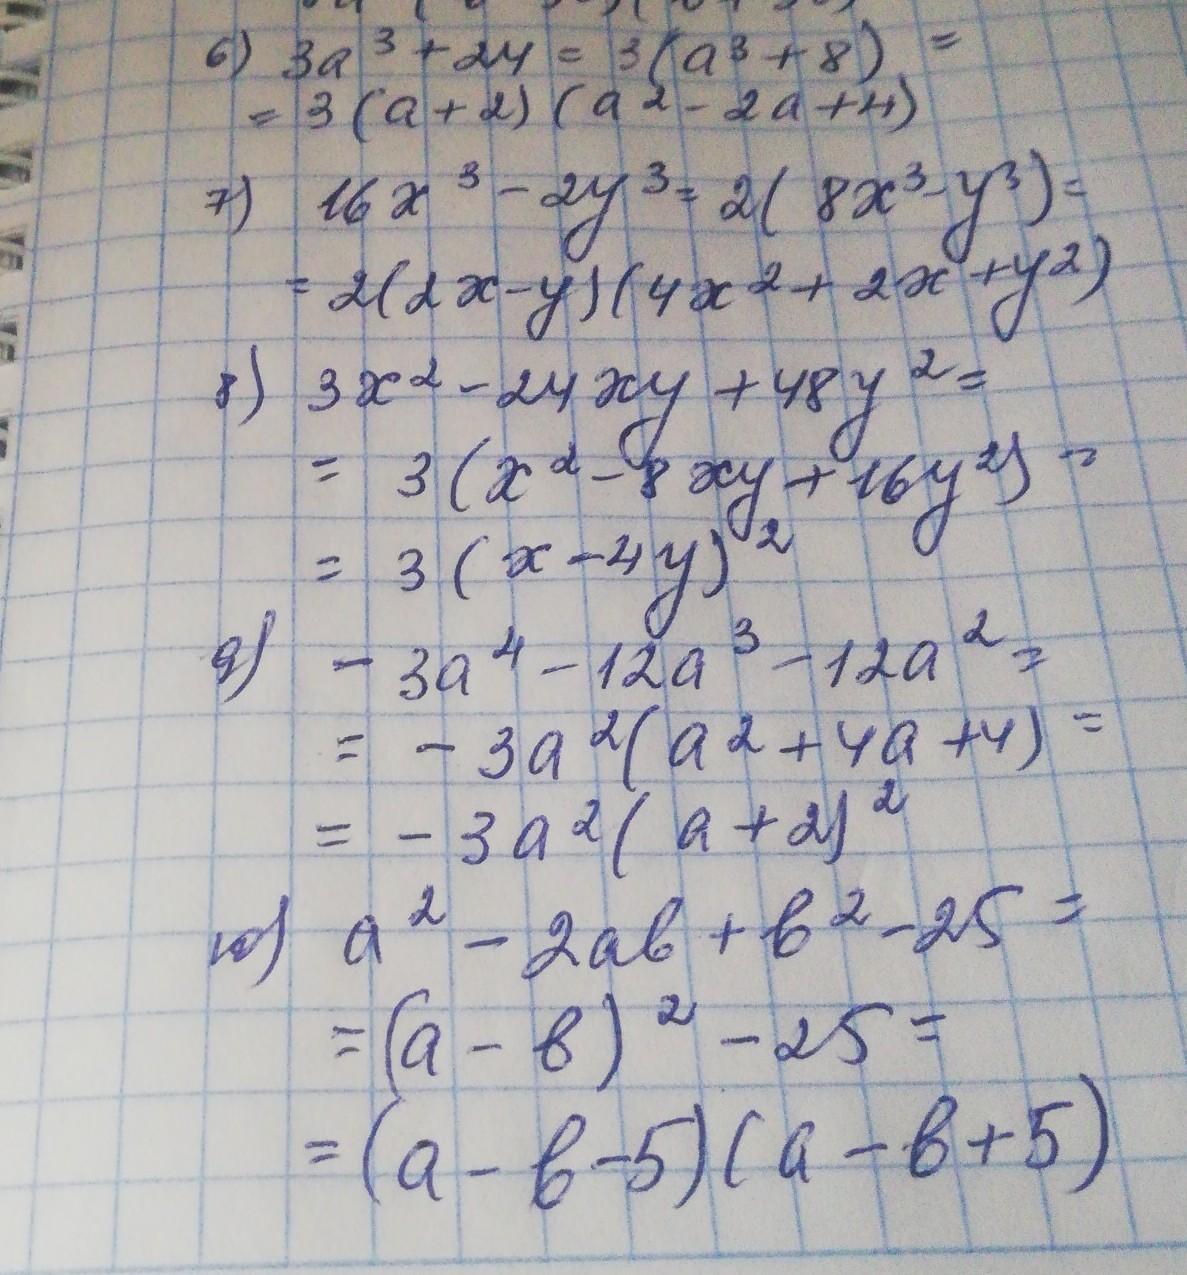 6) 3a³ + 24 = 3(a³ + 8) =
= 3(a + 2)(a² - 2a + 4)
7) 16x³ - 2y³ = 2(8x³ - y³) =
= 2(2x - y)(4x² + 2x + y²)
8) 3x² - 24xy + 48y² =
= 3(x² - 8xy + 16y²) =
= 3(x - 4y)²
9) - 3a⁴ - 12a³ - 12a² =
= - 3a²(a² + 4a + 4) =
= - 3a²(a + 2)²
10) a² - 2ab + b² - 25 =
= (a - b)² - 25 =
= (a - b - 5)(a - b + 5)